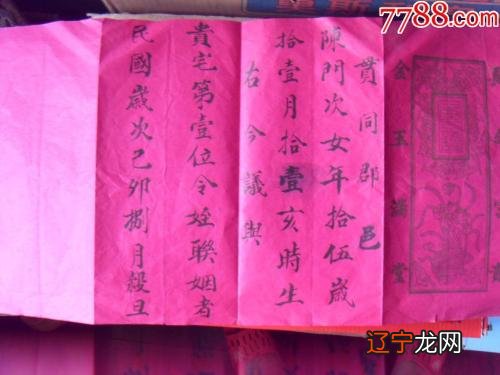 7788.com
金玉滿堂
貫同郡邑
陳門次女年拾伍歲
拾壹月拾壹亥時生
右今議與
貴宅第壹位令姪聯姻者
民國歲次己卯捌月穀旦
辽宁龙网